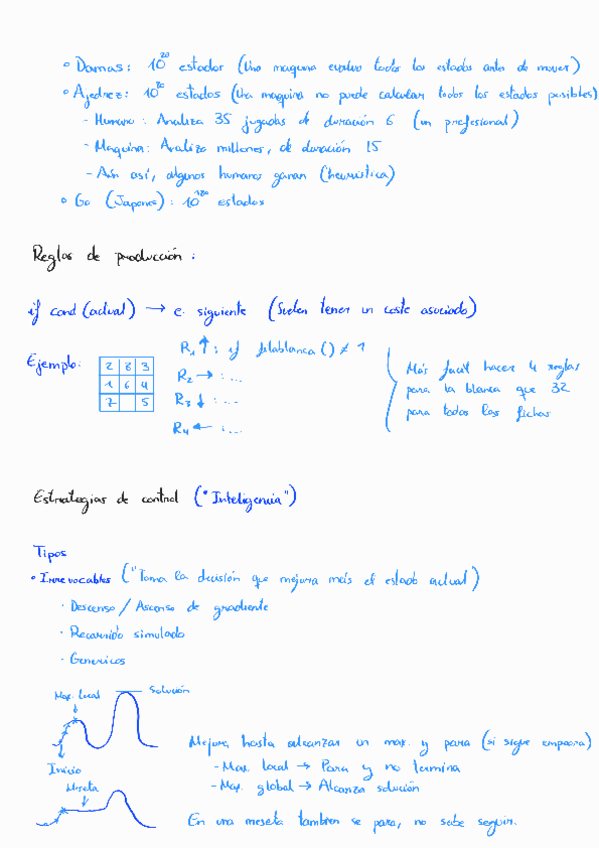 • Damas: 10^20 estados (Una maquina evaluo todos los estados antes de mover)
• Ajedrez: 10^80 estados (Una maquina no puede calcular todos los estados posibles)
- Humano: Analiza 35 jugadas de duración 6 (un profesional)
- Maquina: Analiza millones, de duración 15
- Aún así, algunos humanos ganan (heurística)
• Go (Japones): 10^120 estados
Reglas de producción:
if cond (actual) → e. siguiente (Suelen tener un coste asociado)
Ejemplo:
2 8 3
1 6 4
7 5
R1 ↑: if filablanca() ≠ 1
R2 →: ...
R3 ↓: ...
R4 ←: ...
Más facil hacer 4 reglas
para la blanca que 32
para todas las fichas
Estrategias de control ("Inteligencia")
Tipos
• Irrevocables ("Toma la decisión que mejora más el estado actual)
· Descenso / Ascenso de gradiente
· Recorrido simulado
· Geneticos
Max. local
Solución
Inicio
Mejora, hasta alcanzar un max. y para (si sigue empeora)
- Max. local → Para y no termina
- Max. global → Alcanza solución
Meseta
En una meseta tambien se para, no sabe seguir.